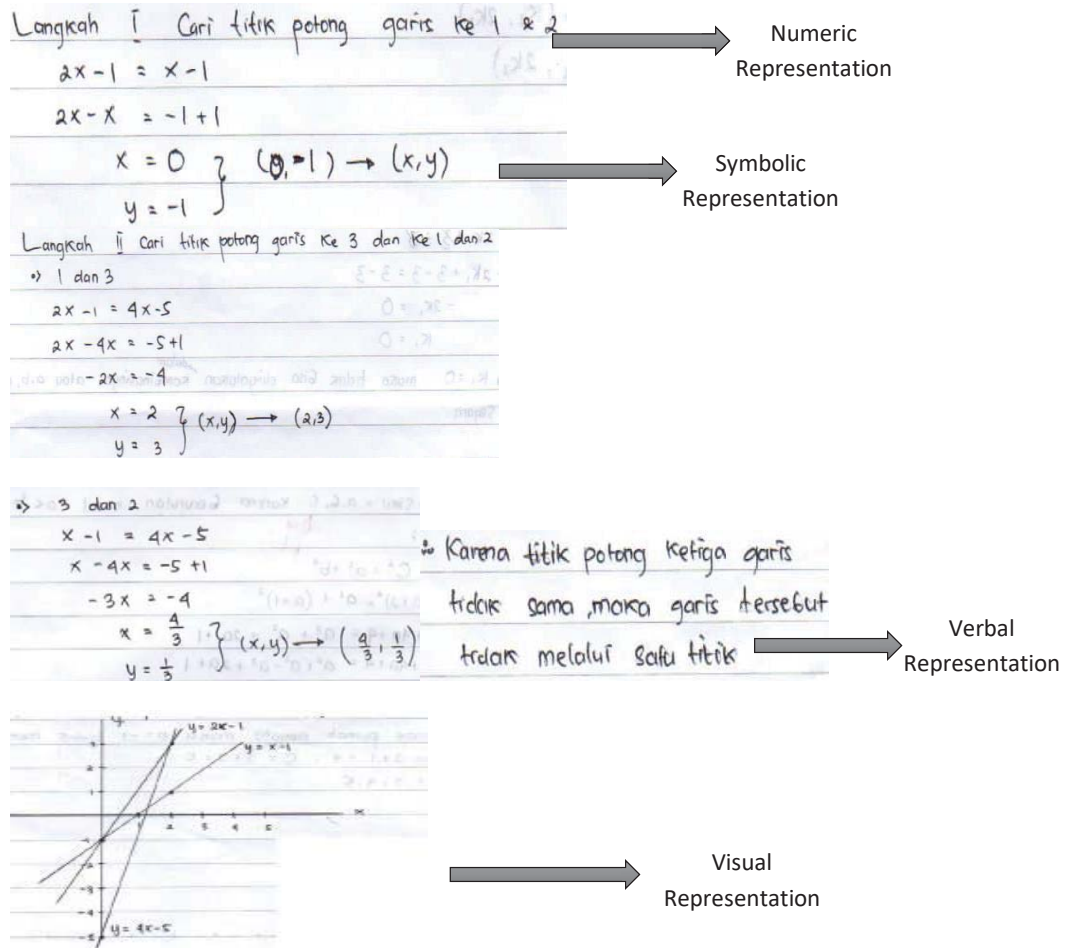 Langkah I Cari titik potong garis ke 1 & 2
2x - 1 = x - 1
2x - x = -1 + 1
x = 0 } (0, -1) → (x, y)
y = -1
Numeric
Representation
Symbolic
Representation
Langkah ii Cari titik potong garis ke 3 dan ke 1 dan 2
•> 1 dan 3
2x - 1 = 4x - 5
2x - 4x = -5 + 1
-2x = -4
x = 2 } (x,y) → (2,3)
y = 3
•> 3 dan 2
x - 1 = 4x - 5
x - 4x = -5 + 1
-3x = -4
x = 4/3 } (x,y) → (4/3, 1/3)
y = 1/3
∴ Karena titik potong ketiga garis
tidak sama, maka garis tersebut
tidak melalui satu titik
Verbal
Representation
y
y = 2x - 1
y = x - 1
3
2
1
1 2 3 4 5
x
-1
-2
-3
-4
-5
y = 4x - 5
Visual
Representation